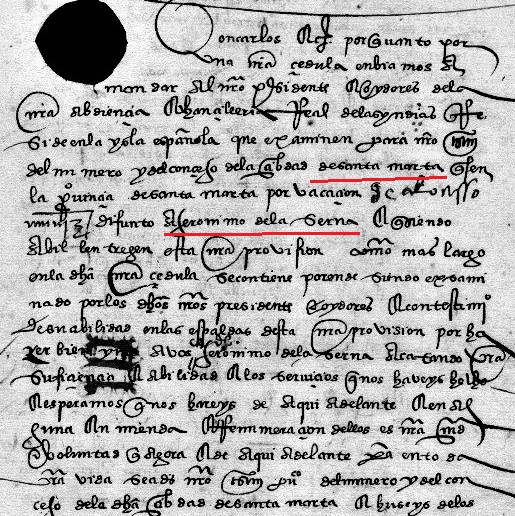 on carlos & por quanto por
na nra cedula enbiamos A
mandar Al nro presidente A oydores dela
nra Abdiencia A chancilleria Real delas yndias que
Reside en la ysla española que examinen para nro
del numero y del concejo dela cibdad de santa marta que es en
la provincia de santa marta por vacacion de alonso
difunto A geronimo dela serna A syendo
Abil le entregen esta nra provision como mas largo
en la dha nra cedula se contiene por ende siendo exsami
nado por los dhos nros presidente & oydores A con testimo
de su abilidad en las espaldas desta nra provision por ha
zer bien A vos geronimo dela serna Acatando vra
suficiencia A Abilidad A los servicios que nos haveys hecho
A esperamos que nos hareys de Aqui Adelante A en Al
guna A emienda A Remuneracion dellos es nra md
& voluntad que Agora A de Aqui Adelante para en to da
vra vida seades nro del numero y del con
cejo dela dha cibdad de santa marta A huseys delos